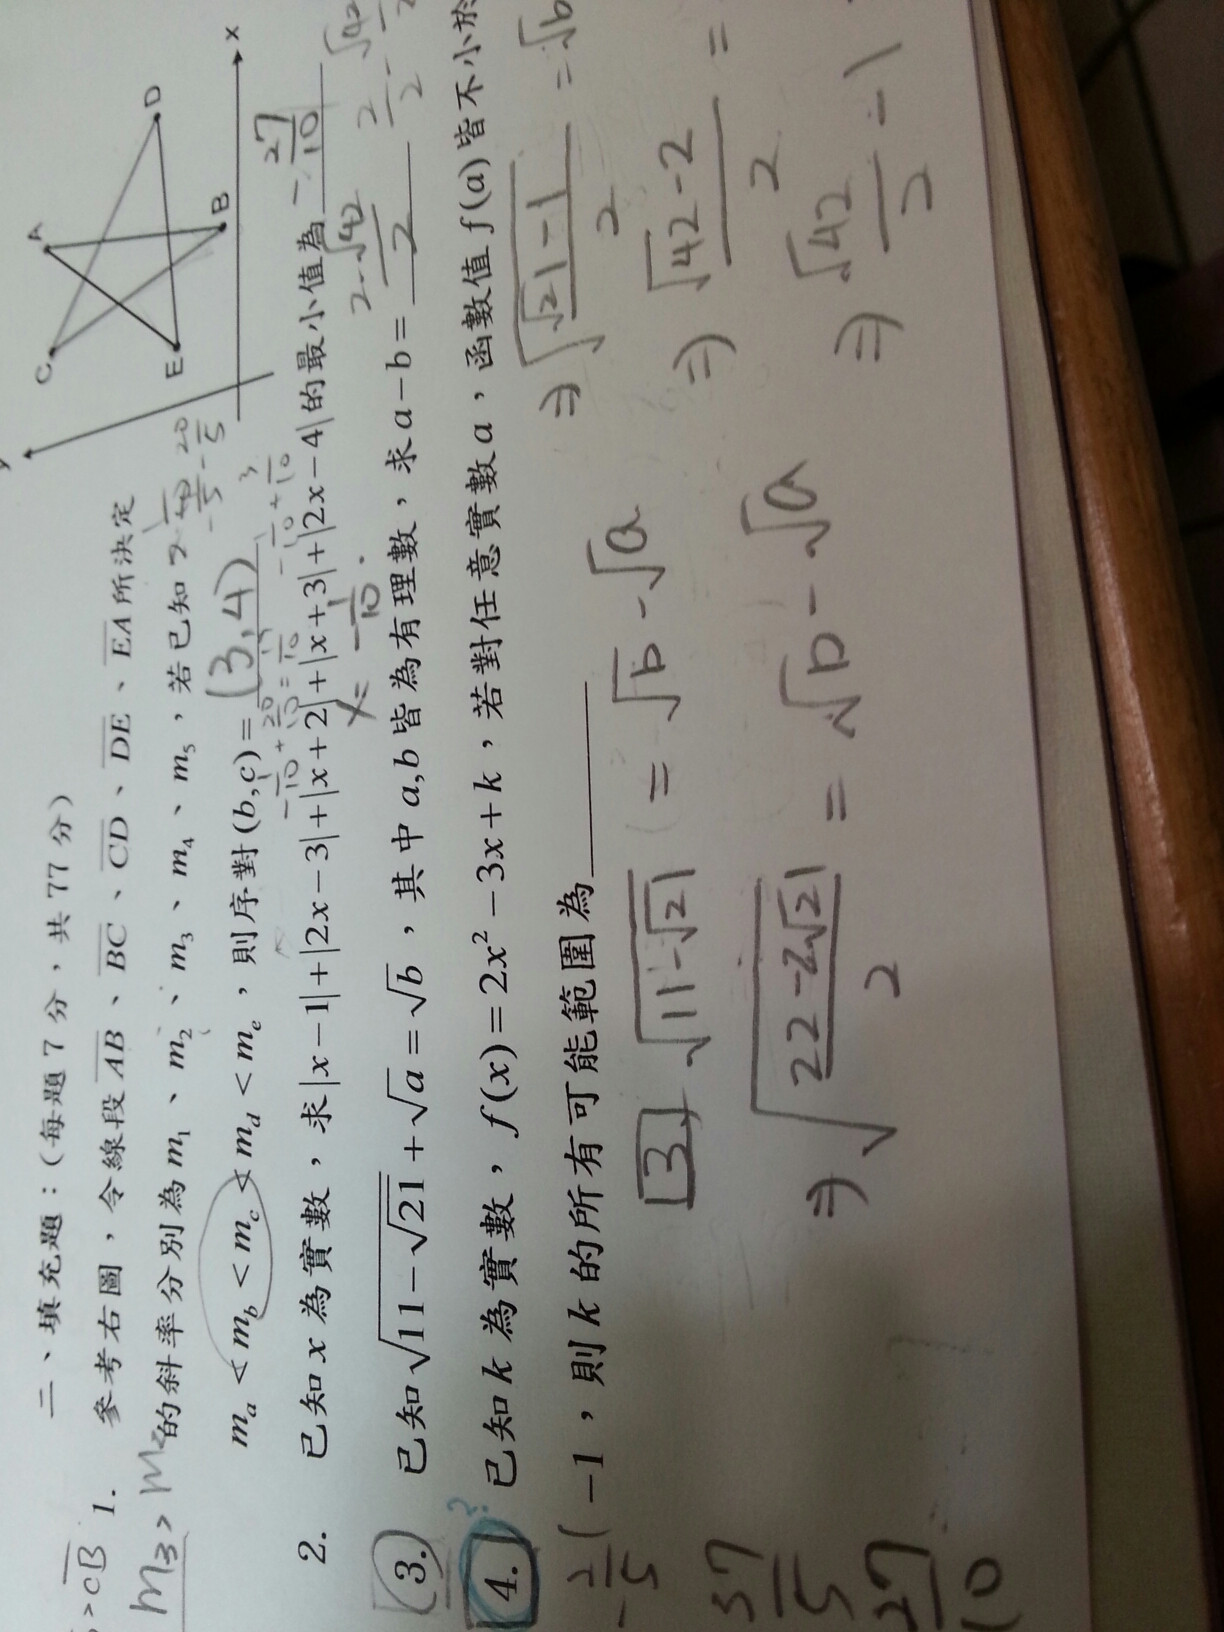 二、填充題：(每題7分，共77分)
> CB 1. 參考右圖，令線段AB、BC、CD、DE、EA所決定
m₃ > m₂ 的斜率分別為m₁、m₂、m₃、m₄、m₅，若已知
mₐ < m_b < m_c < m_d < mₑ，則序對(b,c)= (3,4)
y x A B C D E
2. 已知x為實數，求|x−1|+|2x−3|+|x+2|+|x+3|+|2x−4|的最小值為 -27/10
x = -1/10
(3.) 已知√(11−√21)+√a=√b，其中a,b皆為有理數，求a−b= (2-√42)/2
4. ? 已知k為實數，f(x)=2x²−3x+k，若對任意實數a，函數值f(a)皆不小於
−1，則k的所有可能範圍為
3 √(11-√21) = √b - √a
⇒ √((22-2√21)/2) = √b - √a
⇒ √(√21-1)/2 = √b
⇒ (√42-2)/2 =
⇒ √42/2 - 1
-2/5
37/5
27/10